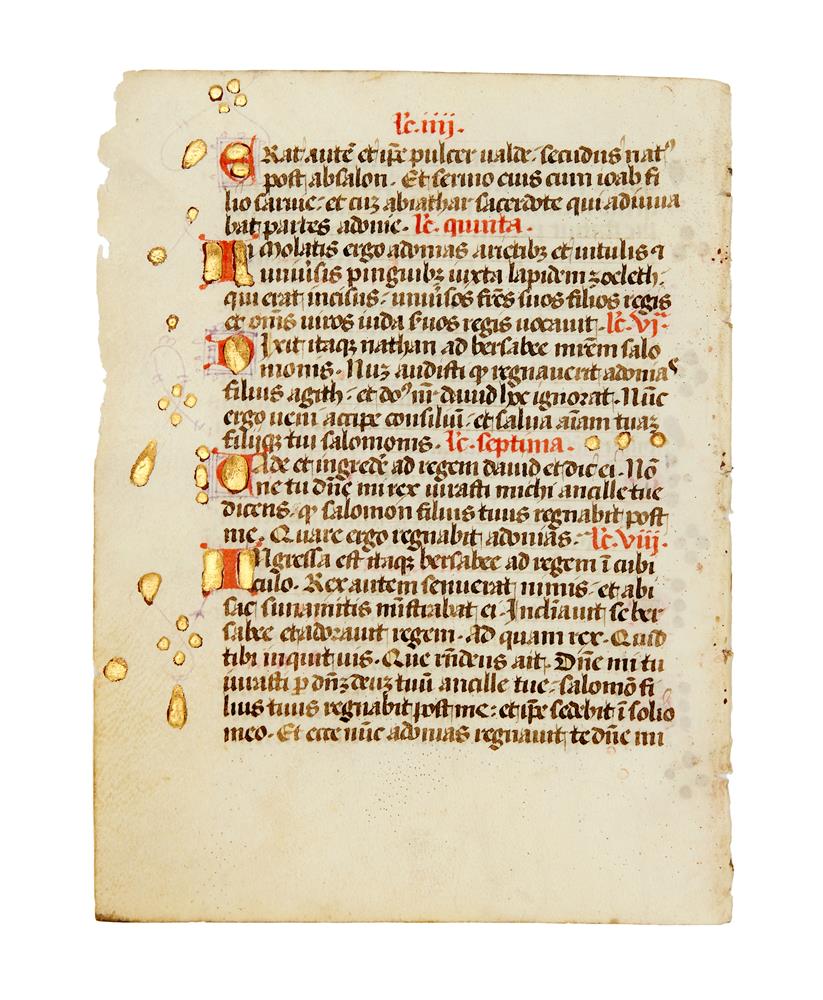 lc̄. iiij.
ERat autē et ip̄e pulcer ualde. secūdus natꝰ
post absalon. Et sermo eius cum ioab fi
lio saruie: et cuz abiathar sacerdote qui adiuua
bat partes adonie. lc̄. quinta.
Imolatis ergo adonias arietibꝫ et uitulis ⁊
uniu͛sis pinguibꝫ iuxta lapidem zoeleth.
qui erat incisus. uniu͛sos fr̄es suos filios regis
et om̄s uiros iuda s͛uos regis uocauit. lc̄. vj.
DIxit itaqꝫ nathan ad bersabee mr̄em salo
monis. Nuz audisti qꝫ regnauerit adoniaˢ
filius agith. et doꝰ nr̄ dauid hoc ignorat. Nūc
ergo ueni accipe consiliū. et salua aīam tuaz
filiiqꝫ tui salomonis. lc̄. septima.
Vade et ingrede ad regem dauid et dic ei. Nō
ne tu dn̄e mi rex iurasti michi ancille tue
dicens. qꝫ salomon filius tuus regnabit post
me. Quare ergo regnabit adonias. lc̄. viij.
INgressa est itaqꝫ bersabee ad regem ī cubi
culo. Rex autem senuerat nimis. et abi
sac sunamitis mīstrabat ei. Inclīauit se ber
sabee et adorauit regem. Ad quam rex. Quid
tibi inquit uis. Que rn̄dens ait. Dn̄e mi tu
iurasti p dn̄ꝫ deuꝫ tuū ancille tue. salomō fi
lius tuus regnabit post me: et ip̄e sedebit ī solio
meo. Et ecce nūc adonias regnauit te dn̄e mi